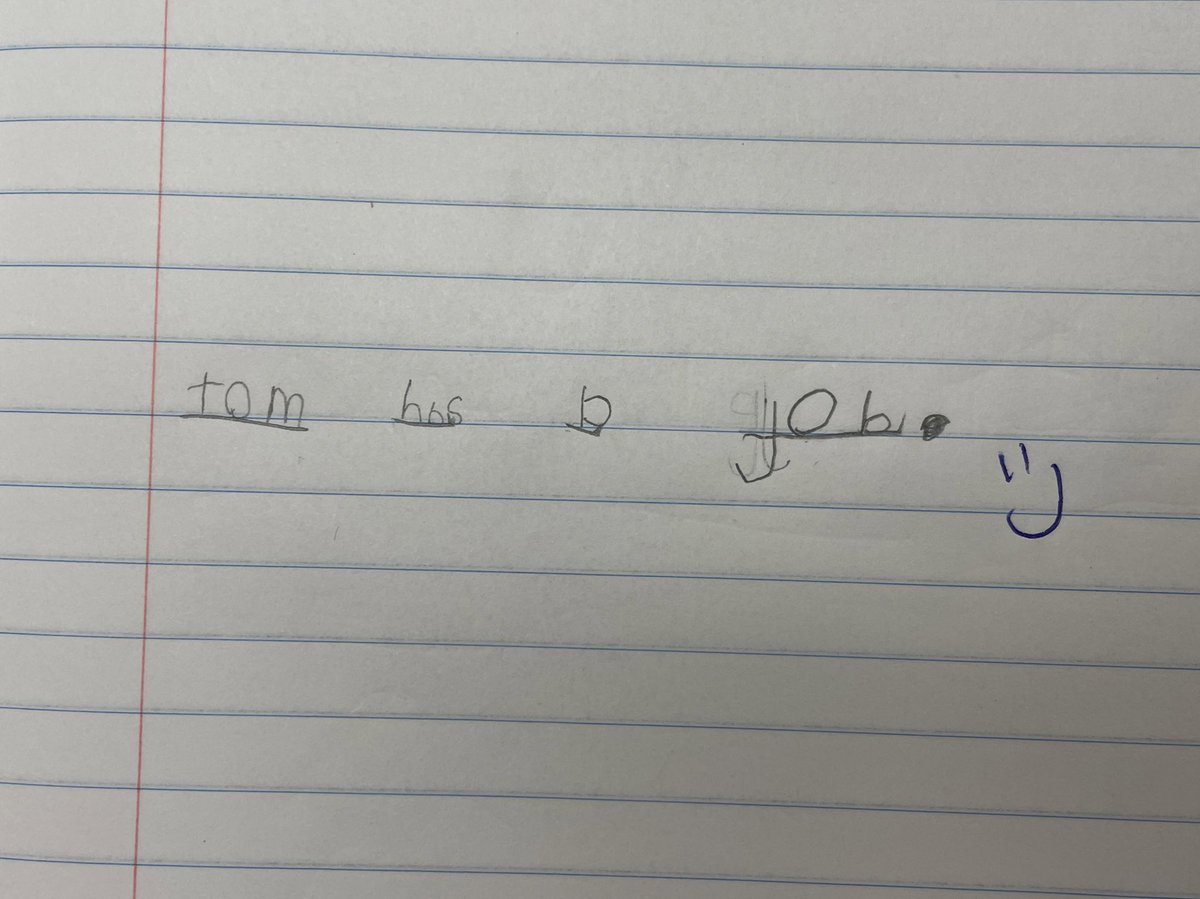 tom has a job.